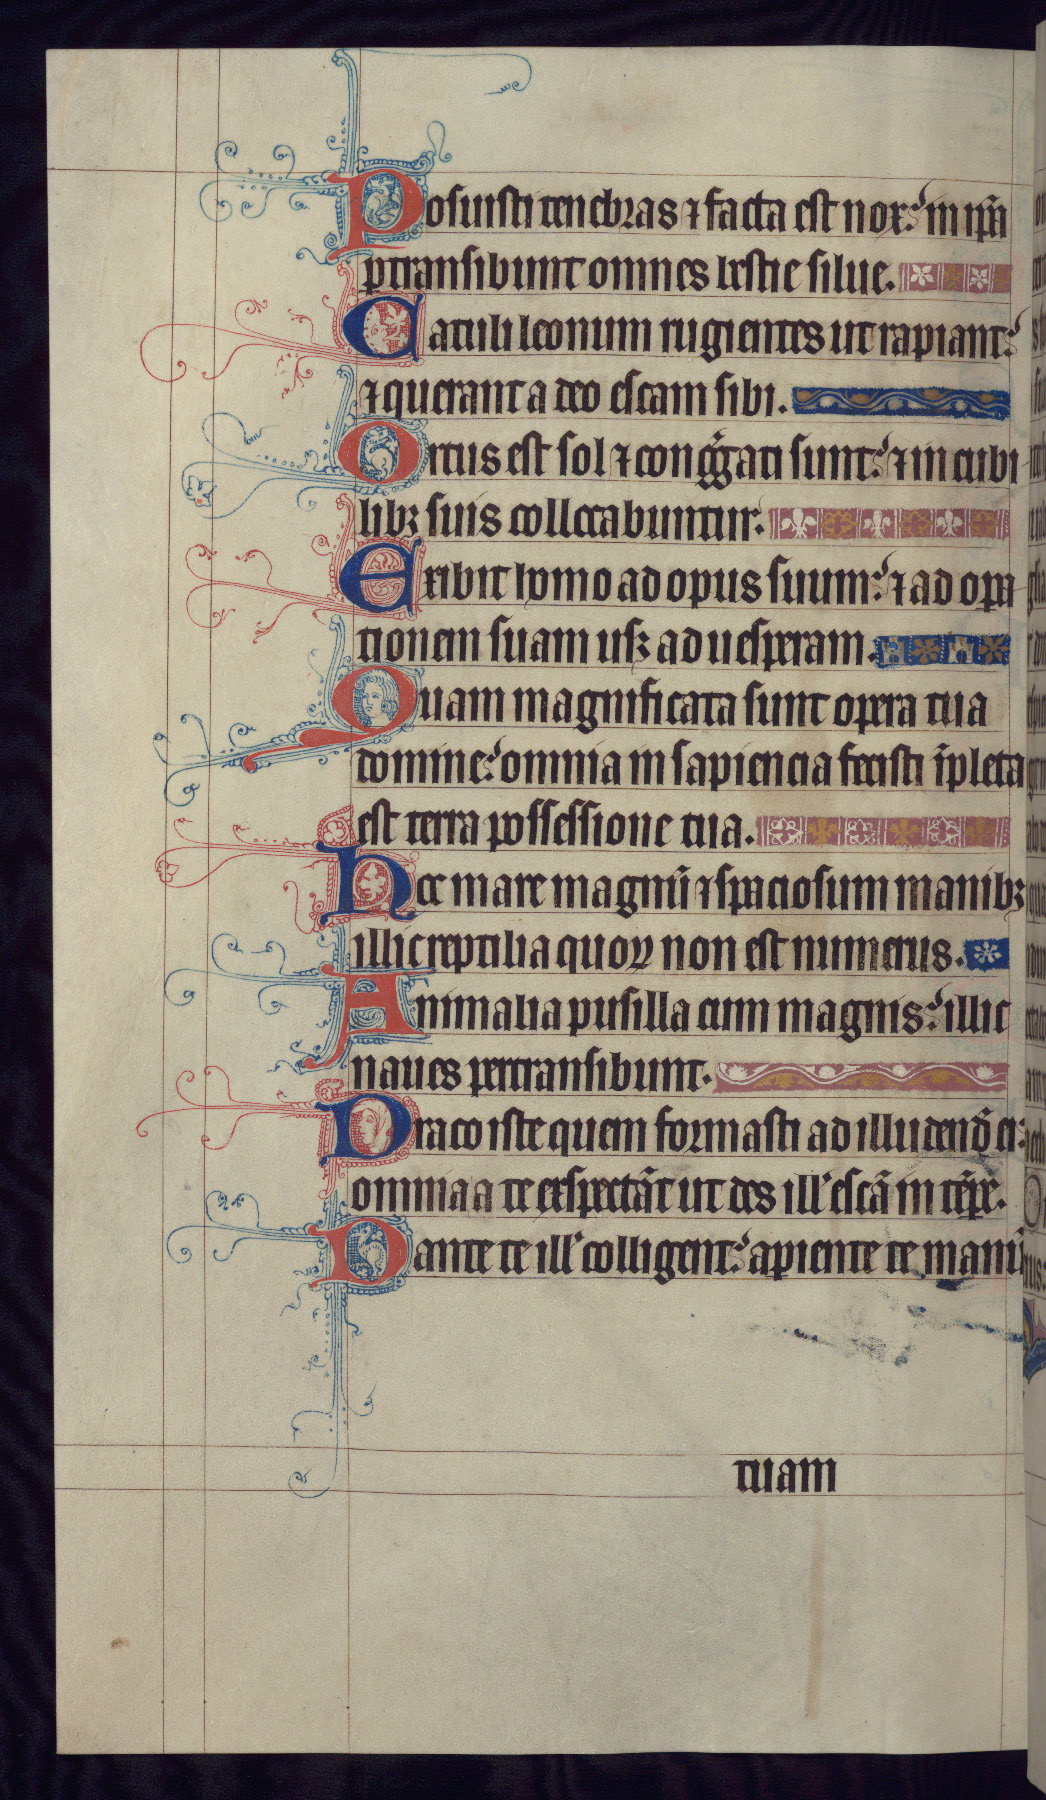 Posuisti tenebras ⁊ facta est nox: in ip̄a
ptransibunt omnes bestie silue.
Catuli leonum rugientes ut rapiant:
⁊ querant a deo escam sibi.
Ortus est sol ⁊ congᷓgati sunt: ⁊ in cubi
libꝫ suis collocabuntur:
Exibit homo ad opus suum: ⁊ ad opa
tionem suam usꝫ ad uesperam.
Quam magnificata sunt opera tua
domine: omnia in sapiencia fecisti īpleta
est terra possessione tua.
Hoc mare magnū ⁊ spaciosum manibꝫ
illic reptilia quoꝝ non est numerus.
Animalia pusilla cum magnis: illic
naues pertransibunt.
Draco iste quem formasti ad illudend̄ ei:
omnia a te exspectāt ut des ill' escā in tēpe.
Dante te ill' colligent: apiente te manū
tuam